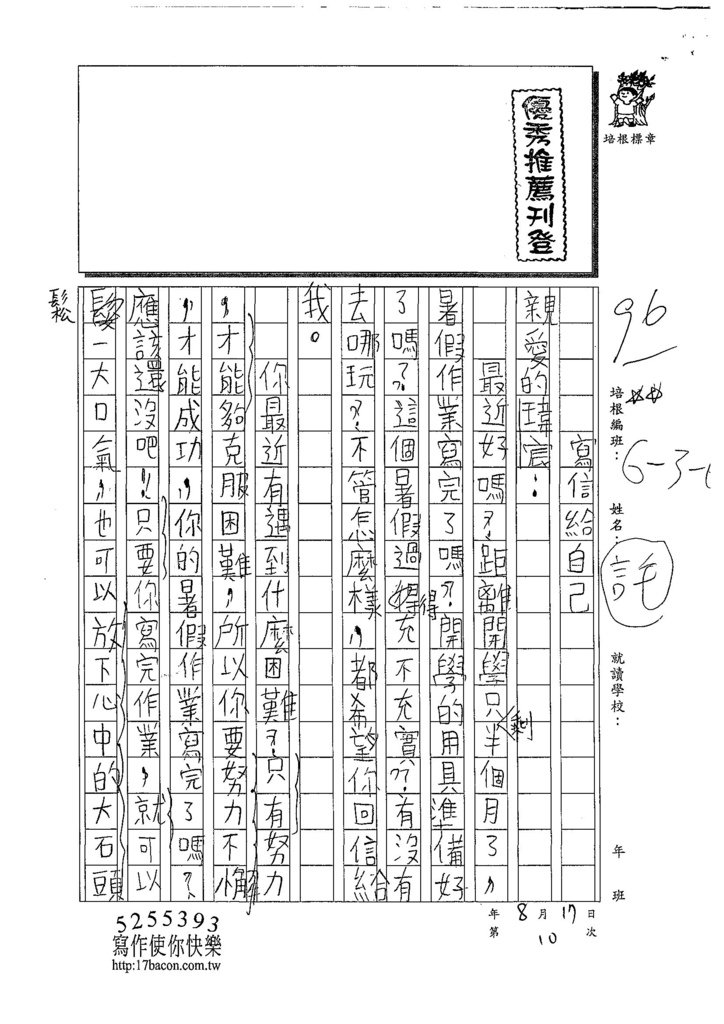 培根標章
優秀推薦刊登
96
培根編班：
6-3-
姓名：
託
就讀學校：
年 班
8月17日
年
第10次
寫信給自己
親愛的瑋宸：
最近好嗎？距離開學只剩半個月了，
暑假作業寫完了嗎？開學的用具準備好
了嗎？這個暑假過得充不充實？有沒有
去哪玩？不管怎麼樣，都希望你回信給
我。
你最近有遇到什麼困難？只有努力
，才能夠克服困難，所以你要努力不懈
，才能成功，你的暑假作業寫完了嗎？
應該還沒吧！只要你寫完作業，就可以
鬆一大口氣，也可以放下心中的大石頭
鬆
得
剩
5255393
寫作使你快樂
http:17bacon.com.tw